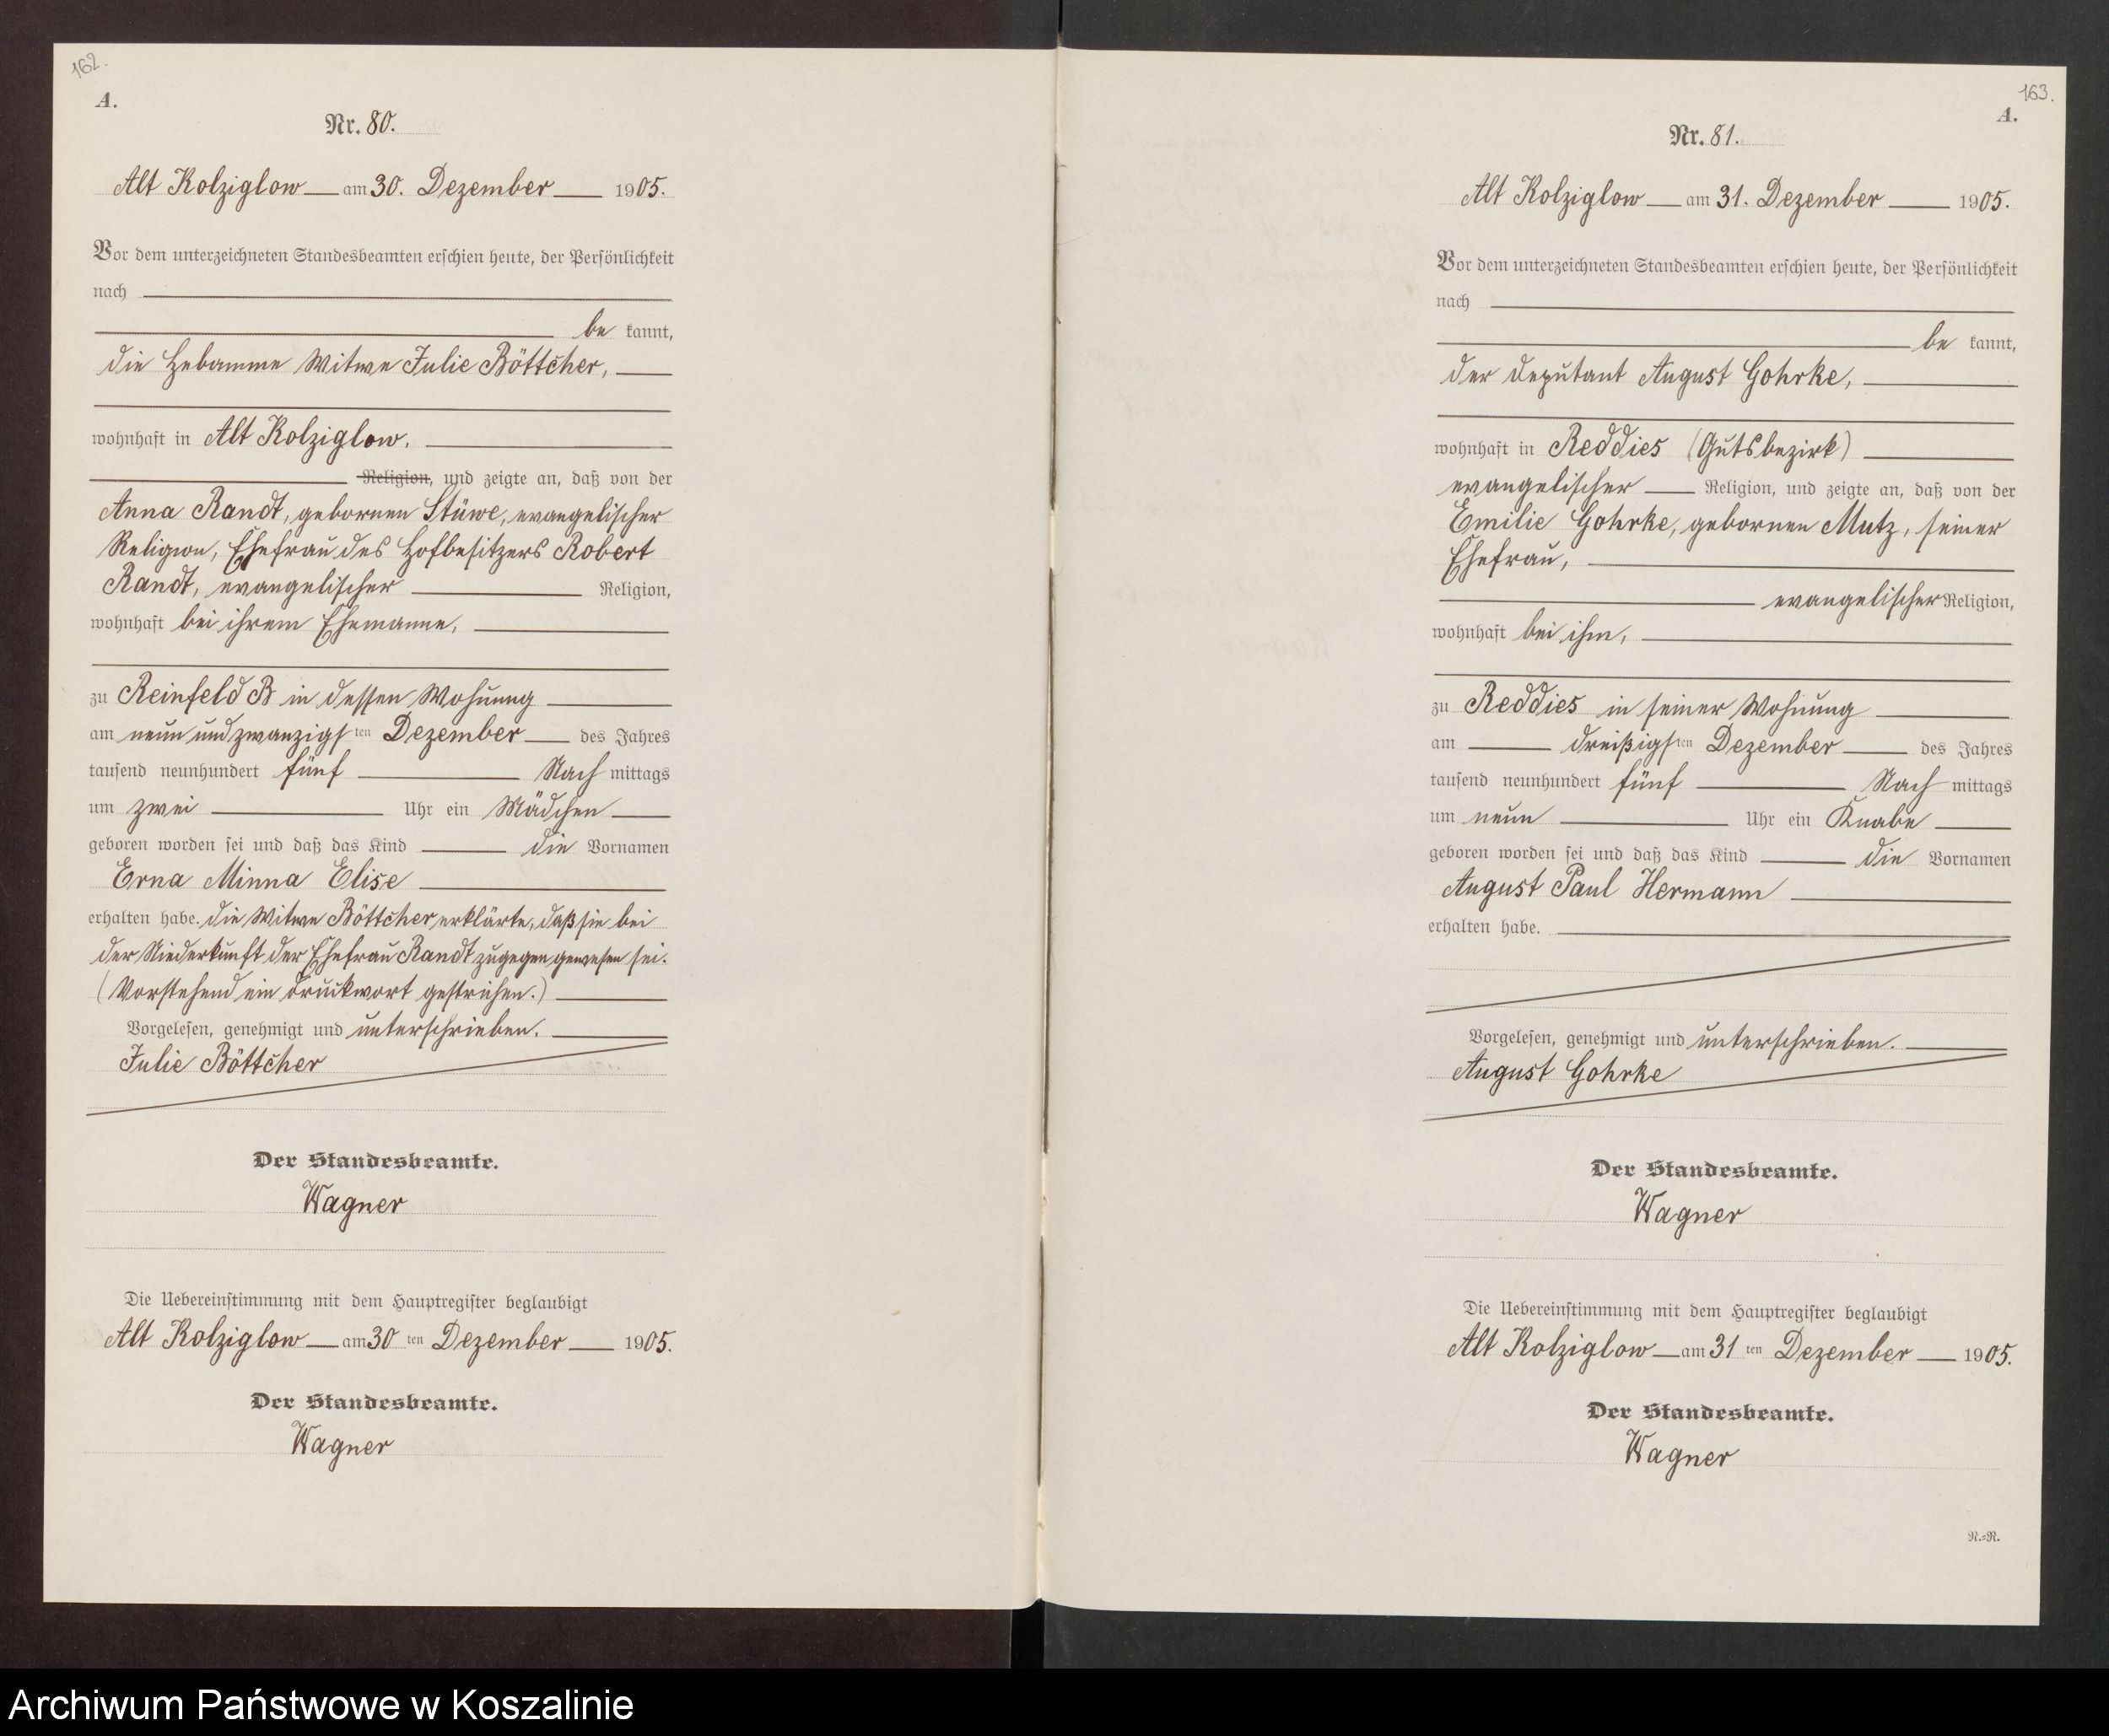 162.
A.
Nr. 80.
Alt Kolziglow am 30. Dezember 1905.
Vor dem unterzeichneten Standesbeamten erschien heute, der Persönlichkeit
nach
be kannt,
die Hebamme Witwe Julie Böttcher,
wohnhaft in Alt Kolziglow.
Religion, und zeigte an, daß von der
Anna Randt, gebornen Stüwe, evangelischer
Religion, Ehefrau des Hofbesitzers Robert
Randt, evangelischer Religion,
wohnhaft bei ihrem Ehemanne,
zu Reinfeld B in dessen Wohnung
am neun und zwanzigsten Dezember des Jahres
tausend neunhundert fünf Nach mittags
um zwei Uhr ein Mädchen
geboren worden sei und daß das Kind die Vornamen
Erna Minna Elise
erhalten habe. Die Witwe Böttcher erklärte, daß sie bei
der Niederkunft der Ehefrau Randt zugegen gewesen sei.
(Vorstehend ein Druckwort gestrichen.)
Vorgelesen, genehmigt und unterschrieben.
Julie Böttcher
Der Standesbeamte.
Wagner
Die Uebereinstimmung mit dem Hauptregister beglaubigt
Alt Kolziglow am 30 ten Dezember 1905.
Der Standesbeamte.
Wagner
163.
A.
Nr. 81.
Alt Kolziglow am 31. Dezember 1905.
Vor dem unterzeichneten Standesbeamten erschien heute, der Persönlichkeit
nach
be kannt,
der Deputant August Gohrke,
wohnhaft in Reddies (Gutsbezirk)
evangelischer Religion, und zeigte an, daß von der
Emilie Gohrke, gebornen Mutz, seiner
Ehefrau,
evangelischer Religion,
wohnhaft bei ihm,
zu Reddies in seiner Wohnung
am dreißigsten Dezember des Jahres
tausend neunhundert fünf Nach mittags
um neun Uhr ein Knabe
geboren worden sei und daß das Kind die Vornamen
August Paul Hermann
erhalten habe.
Vorgelesen, genehmigt und unterschrieben.
August Gohrke
Der Standesbeamte.
Wagner
Die Uebereinstimmung mit dem Hauptregister beglaubigt
Alt Kolziglow am 31 ten Dezember 1905.
Der Standesbeamte.
Wagner
N.=R.
Archiwum Państwowe w Koszalinie